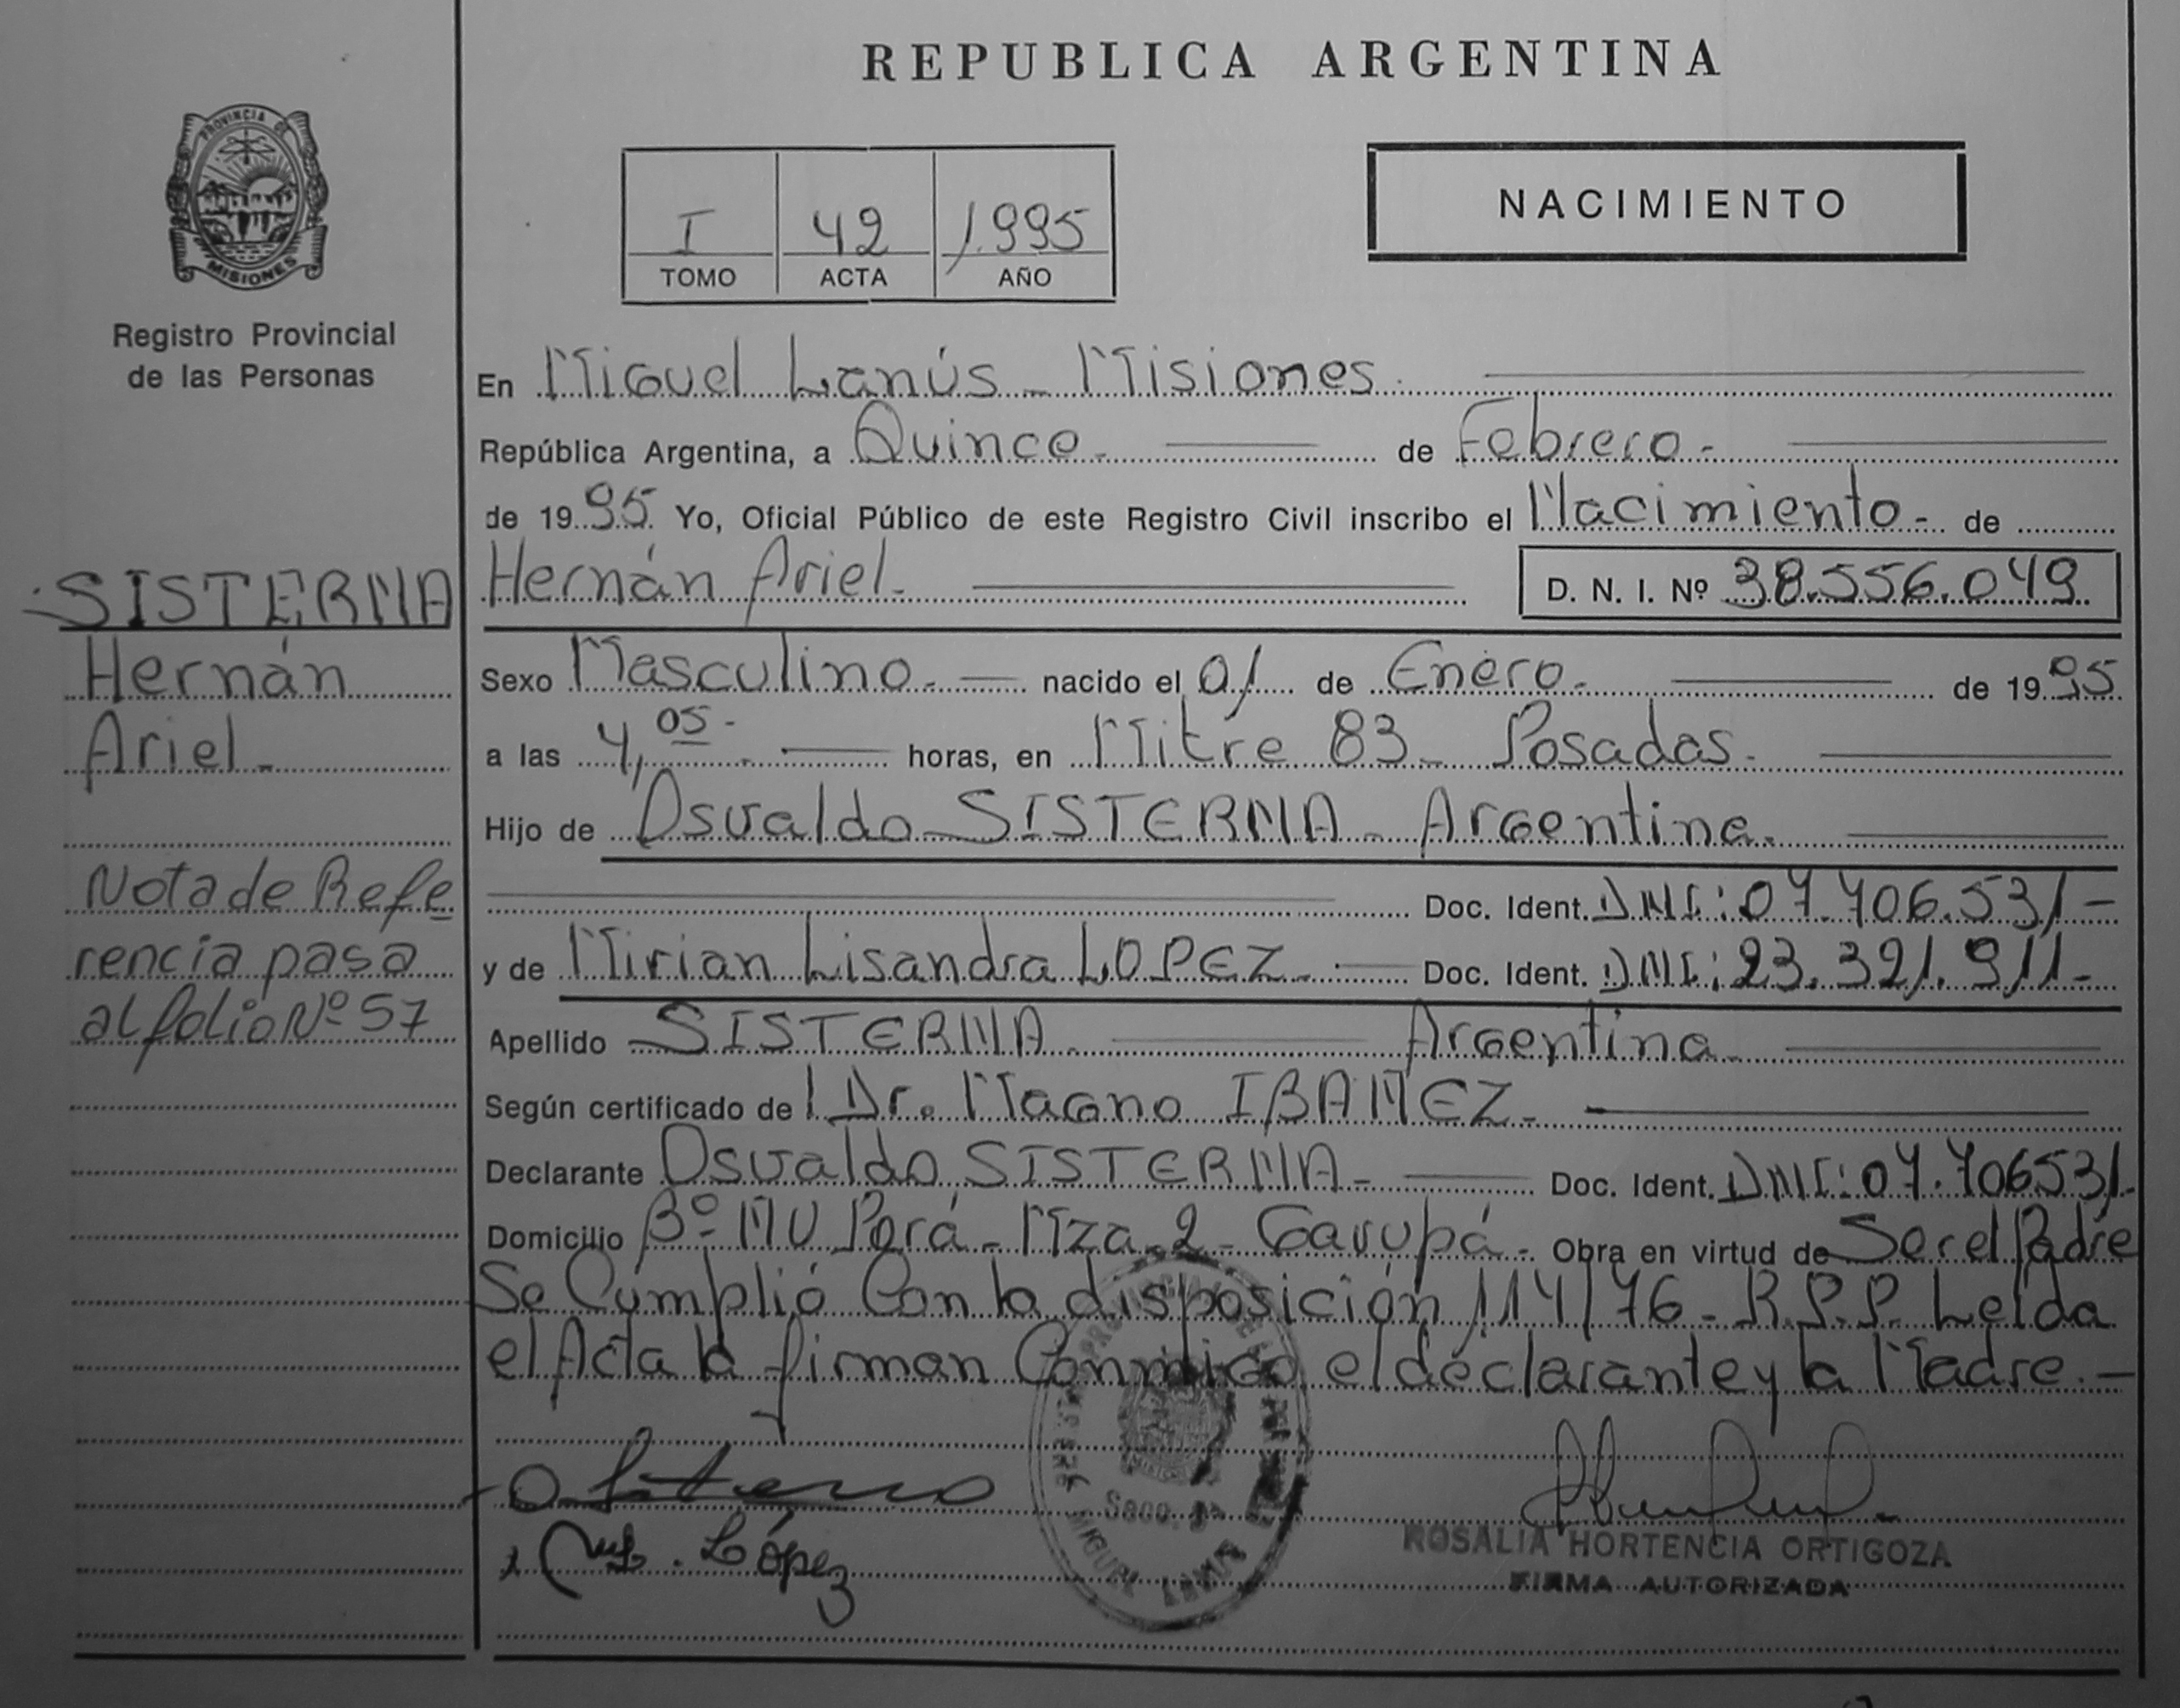 REPUBLICA ARGENTINA
PROVINCIA DE
MISIONES
Registro Provincial
de las Personas
I 42 1.995
TOMO ACTA AÑO
NACIMIENTO
En Miguel Lanús - Misiones.
República Argentina, a Quince - de Febrero -
de 1995. Yo, Oficial Público de este Registro Civil inscribo el Nacimiento - de
Hernán Ariel - D. N. I. Nº 38.556.049
SISTERNA
Hernán
Ariel -
Nota de Refe
rencia pasa
al folio Nº 57
Sexo Masculino - nacido el 01 de Enero - de 1995
a las 4,05 - horas, en Mitre 83 - Posadas -
Hijo de Osvaldo SISTERNA - Argentina -
Doc. Ident. DNI: 07.706.531 -
y de Mirian Lisandra LOPEZ - Doc. Ident. DNI: 23.321.911 -
Apellido SISTERNA - Argentina -
Según certificado del Dr. Magno IBAÑEZ -
Declarante Osvaldo SISTERNA - Doc. Ident. DNI: 07.706531 -
Domicilio Bº ÑU Porá - Mza. 2 - Garupá - Obra en virtud de Ser el Padre
Se Cumplió Con la disposición 114/76 - R.P.P. Leída
el Acta la firman Conmigo el declarante y la Madre. -
López
Secc. 1ª
MIGUEL LANUS
ROSALIA HORTENCIA ORTIGOZA
FIRMA AUTORIZADA